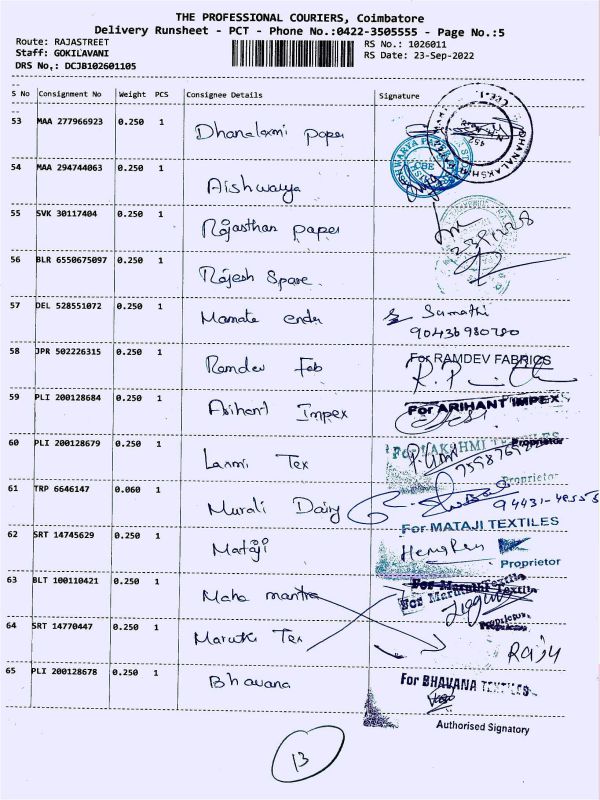 THE PROFESSIONAL COURIERS, Coimbatore
Delivery Runsheet - PCT - Phone No.:0422-3505555 - Page No.:5
Route: RAJASTREET
RS No.: 1026011
Staff: GOKILAVANI
RS Date: 23-Sep-2022
DRS No.: DCJB102601105
S No Consignment No Weight PCS Consignee Details Signature
53 MAA 277966923 0.250 1 Dhanalaxmi paper
54 MAA 294744063 0.250 1 Aishwarya
55 SVK 30117404 0.250 1 Rajasthan paper
56 BLR 6550675097 0.250 1 Rajesh Spare
57 DEL 528551072 0.250 1 Mamate Sumathi
58 JPR 502226315 0.250 1 Ramdev Fab For RAMDEV FABRICS
59 PLI 200128684 0.250 1 Arihant Impex For ARIHANT IMPEX
Proprietor
60 PLI 200128679 0.250 1 Laxmi Tex For LAKSHMI TEXTILES
Proprietor
61 TRP 6646147 0.060 1 Murali Dairy
For MATAJI TEXTILES
62 SRT 14745629 0.250 1 Mataji
Proprietor
63 BLT 100110421 0.250 1 Maha mantra For Maruthi Textile
Proprietor
64 SRT 14770447 0.250 1 Maruti Tex Raju
65 PLI 200128678 0.250 1 Bhavana For BHAVANA TEXTILES
Authorised Signatory
13